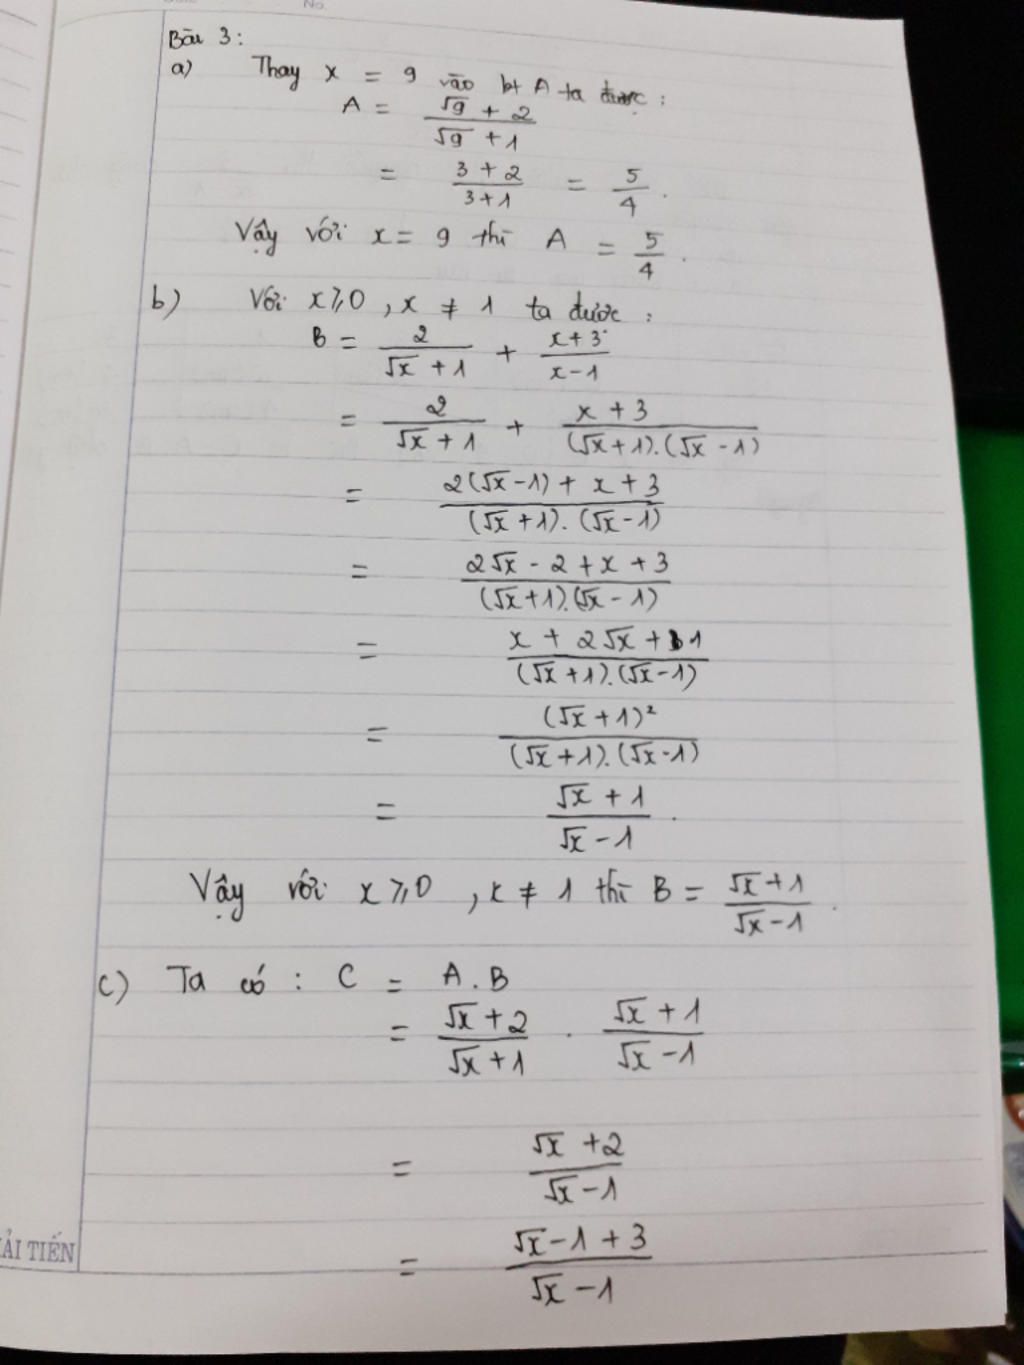 No.
Bài 3:
a) Thay x = 9 vào bt A ta được:
A = (√9 + 2)/(√9 + 1)
= (3 + 2)/(3 + 1) = 5/4.
Vậy với x = 9 thì A = 5/4.
b) Với x ⩾ 0, x ≠ 1 ta được:
B = 2/(√x + 1) + (x + 3)/(x - 1)
= 2/(√x + 1) + (x + 3)/((√x + 1).(√x - 1))
= (2(√x - 1) + x + 3)/((√x + 1).(√x - 1))
= (2√x - 2 + x + 3)/((√x + 1).(√x - 1))
= (x + 2√x + 1)/((√x + 1).(√x - 1))
= (√x + 1)²/((√x + 1).(√x - 1))
= (√x + 1)/(√x - 1).
Vậy với x ⩾ 0, x ≠ 1 thì B = (√x + 1)/(√x - 1).
c) Ta có: C = A.B
= (√x + 2)/(√x + 1) . (√x + 1)/(√x - 1)
= (√x + 2)/(√x - 1)
= (√x - 1 + 3)/(√x - 1)
ẢI TIẾN